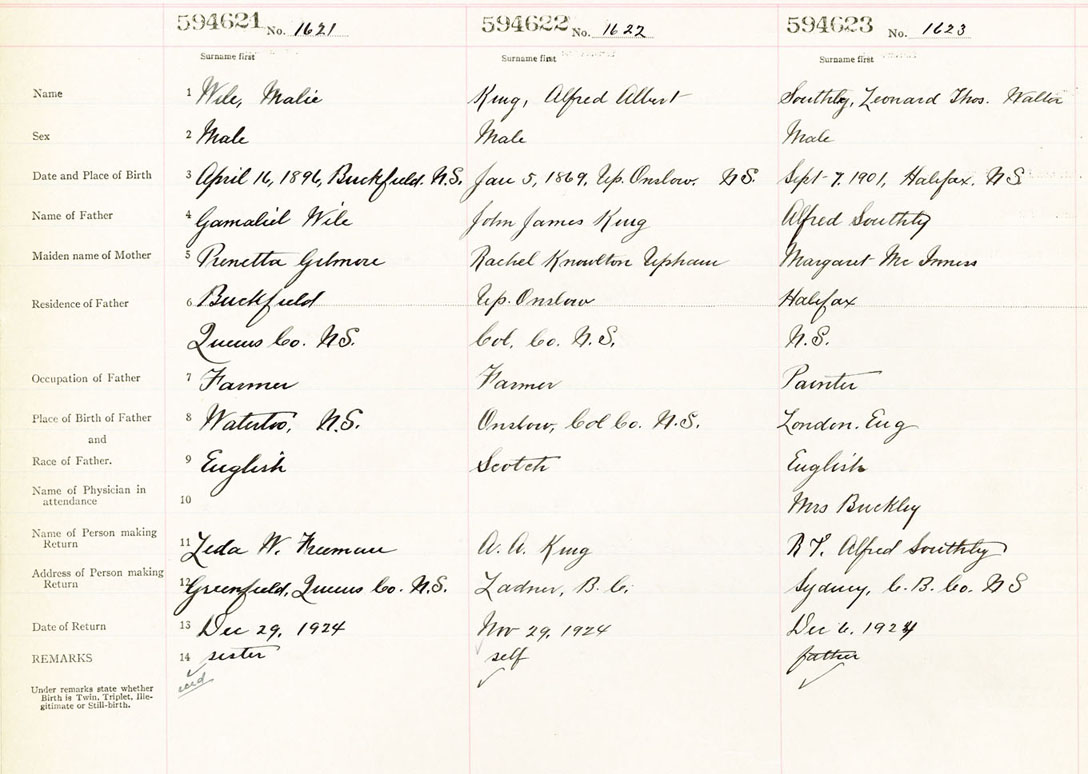 594621 No. 1621 594622 No. 1622 594623 No. 1623
Surname first Surname first Surname first
Name 1 Wile, Malie King, Alfred Albert Southly, Leonard Thos. Walter
Sex 2 Male Male Male
Date and Place of Birth 3 April 16, 1896, Buckfield. N.S. Jan 5, 1869, Up. Onslow. N.S. Sept 7. 1901, Halifax. N.S
Name of Father 4 Gamaliel Wile John James King Alfred Southly
Maiden name of Mother 5 Prenetta Gilmore Rachel Knowlton Upham Margaret Mc Inness
Residence of Father 6 Buckfield Up. Onslow Halifax
Queens Co. N.S. Col. Co. N.S. N.S.
Occupation of Father 7 Farmer Farmer Painter
Place of Birth of Father 8 Waterloo, N.S. Onslow, Col Co. N.S. London. Eng
and
Race of Father. 9 English Scotch English
Name of Physician in
attendance 10 Mrs Buckley
Name of Person making
Return 11 Zeda W. Freeman A. A. King Alfred Southly
Address of Person making
Return 12 Greenfield, Queens Co. N.S. Ladner, B. C. Sydney, C. B. Co. N S
Date of Return 13 Dec 29, 1924 Nov 29, 1924 Dec 6. 1924
REMARKS 14 sister self father
Under remarks state whether
Birth is Twin, Triplet, Ille-
gitimate or Still-birth.